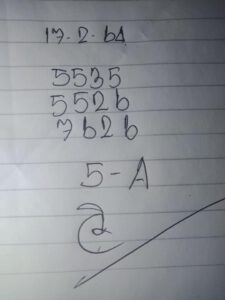 17-2-64
5535
5526
7626
5-A